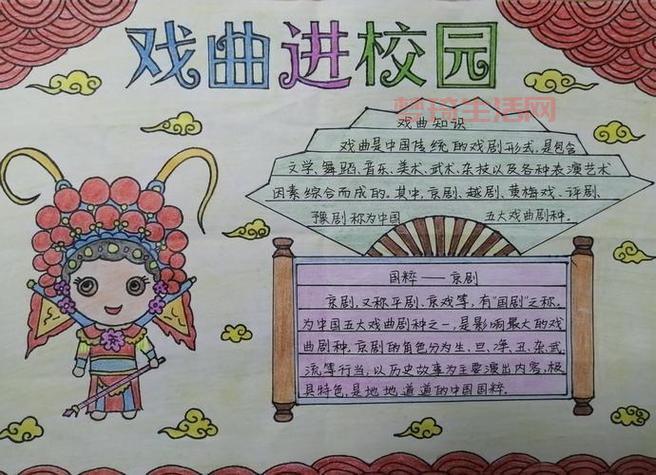 戏曲进校园
梦琦生活网
戏曲知识
戏曲是中国传统的戏剧形式,是包含
文学、舞蹈、音乐、美术、武术、杂技以及各种表演艺术
因素综合而成的。其中,京剧、越剧、黄梅戏、评剧、
豫剧称为中国 五大戏曲剧种。
国粹——京剧
京剧,又称平剧、京戏等,有“国剧”之称,
为中国五大戏曲剧种之一,是影响最大的戏
曲剧种,京剧的角色分为生、旦、净、丑、杂、武、
流等行当,以历史故事为主要演出内容,极
具特色,是地地道道的中国国粹。